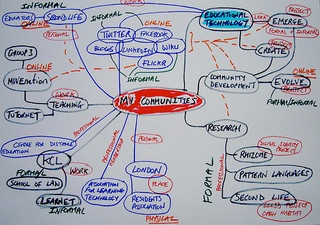 INFORMAL
EDUCATORS
SECONDLIFE
ONLINE
PERSONAL
INFORMAL
ONLINE
TWITTER
FACEBOOK
BLOGS
LINKEDIN
WIKI
FLICKR
INFORMAL
EDUCATIONAL
TECHNOLOGY
WORK
PROJECT
EMERGE
FORMAL + INFORMAL
ONLINE
CREATE
ONLINE
EVOLVE
PROJECT
FORMAL/INFORMAL
COMMUNITY
DEVELOPMENT
GROUP3
ONLINE
WORK
TEACHING
TUTORNET
MY COMMUNITIES
RESEARCH
CENTRE FOR DISTANCE
EDUCATION
PROFESSIONAL
KCL
FORMAL
WORK
SCHOOL OF LAW
LEARNET
INFORMAL
PROFESSIONAL
MEMBERSHIP
ASSOCIATION FOR
LEARNING
TECHNOLOGY
PERSONAL
LONDON
PLACE
RESIDENTS
ASSOCIATION
PHYSICAL
FORMAL
PROFESSIONAL
DIGITAL IDENTITY
PROJECT
RHIZOME
PATTERN LANGUAGES
SECOND LIFE
PROJECT
OPEN HABITAT